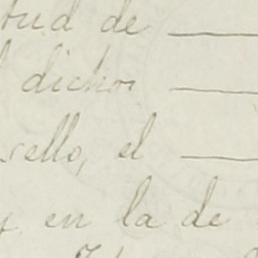 tud de
dichos
sello, el
y en la de